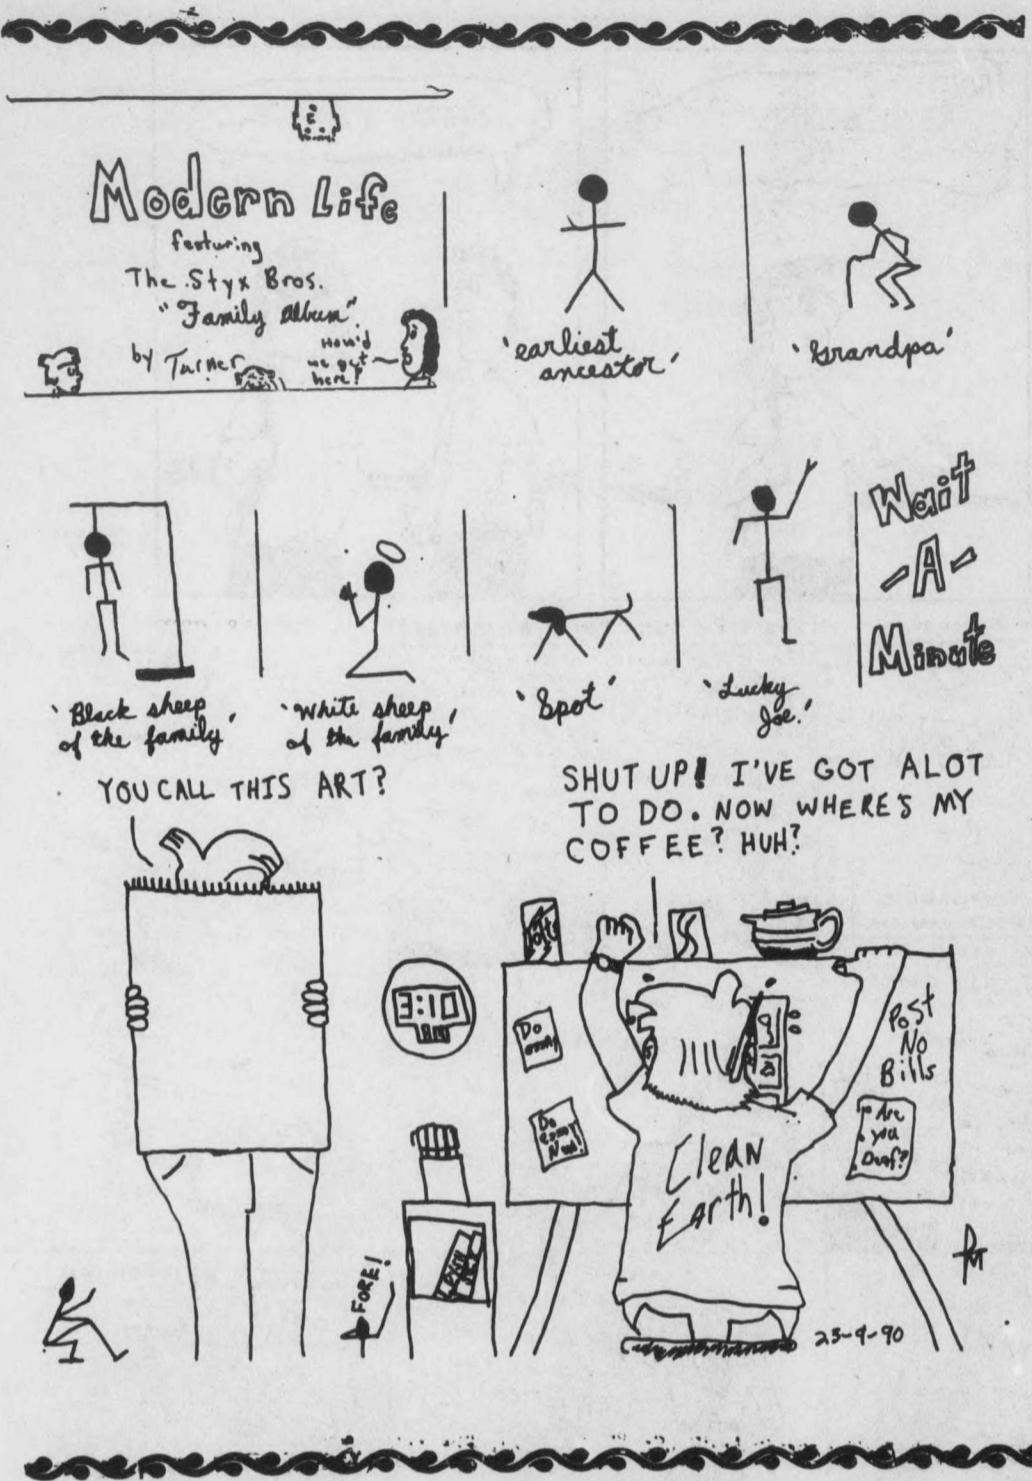 Modern Life
featuring
The Styx Bros.
"Family Album"
by Turner
How'd
we get
here?
'earliest
ancestor'
'Grandpa'
'Black sheep
of the family'
'White sheep
of the family'
'Spot'
'Lucky
Joe.'
Wait
-A-
Minute
YOU CALL THIS ART?
SHUT UP! I'VE GOT ALOT
TO DO. NOW WHERE'S MY
COFFEE? HUH?
3:10
Do
Do
Now!
Post
No
Bills
Are
you
Deaf?
Clean
Earth!
FORE!
23-4-90